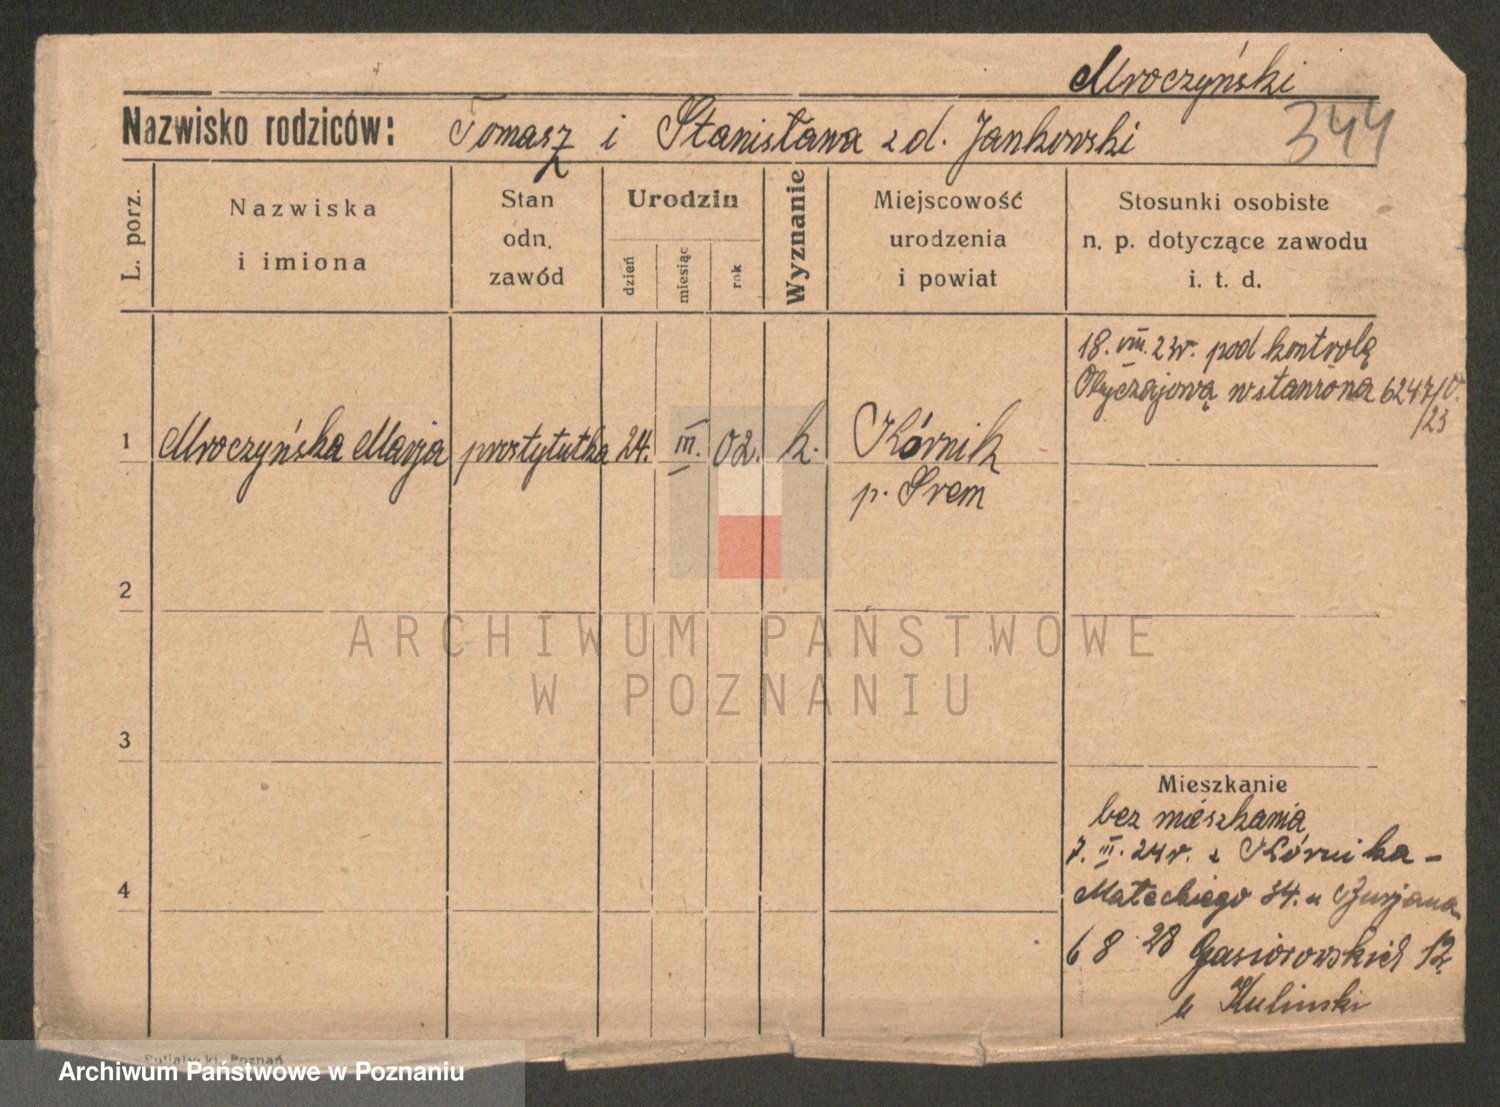 Mroczyński
Nazwisko rodziców: Tomasz i Stanisława z d. Jankowski 344
L. porz.
Nazwiska
i imiona
Stan
odn.
zawód
Urodzin
dzień
miesiąc
rok
Wyznanie
Miejscowość
urodzenia
i powiat
Stosunki osobiste
n. p. dotyczące zawodu
i. t. d.
18. VIII. 23r. pod kontrolą
Obyczajową wstawiona 6247/O.
/23
1 Mroczyńska Marja prostytutka 24. III. 02. k. Kórnik
p. Śrem
2
3
4
Mieszkanie
bez mieszkania
7. III. 24r. z Kórnika -
Małeckiego 34. u
6 8 28 Gąsiorowskich 12
u Kulinski
ARCHIWUM PAŃSTWOWE
W POZNANIU
Poznań
Archiwum Państwowe w Poznaniu